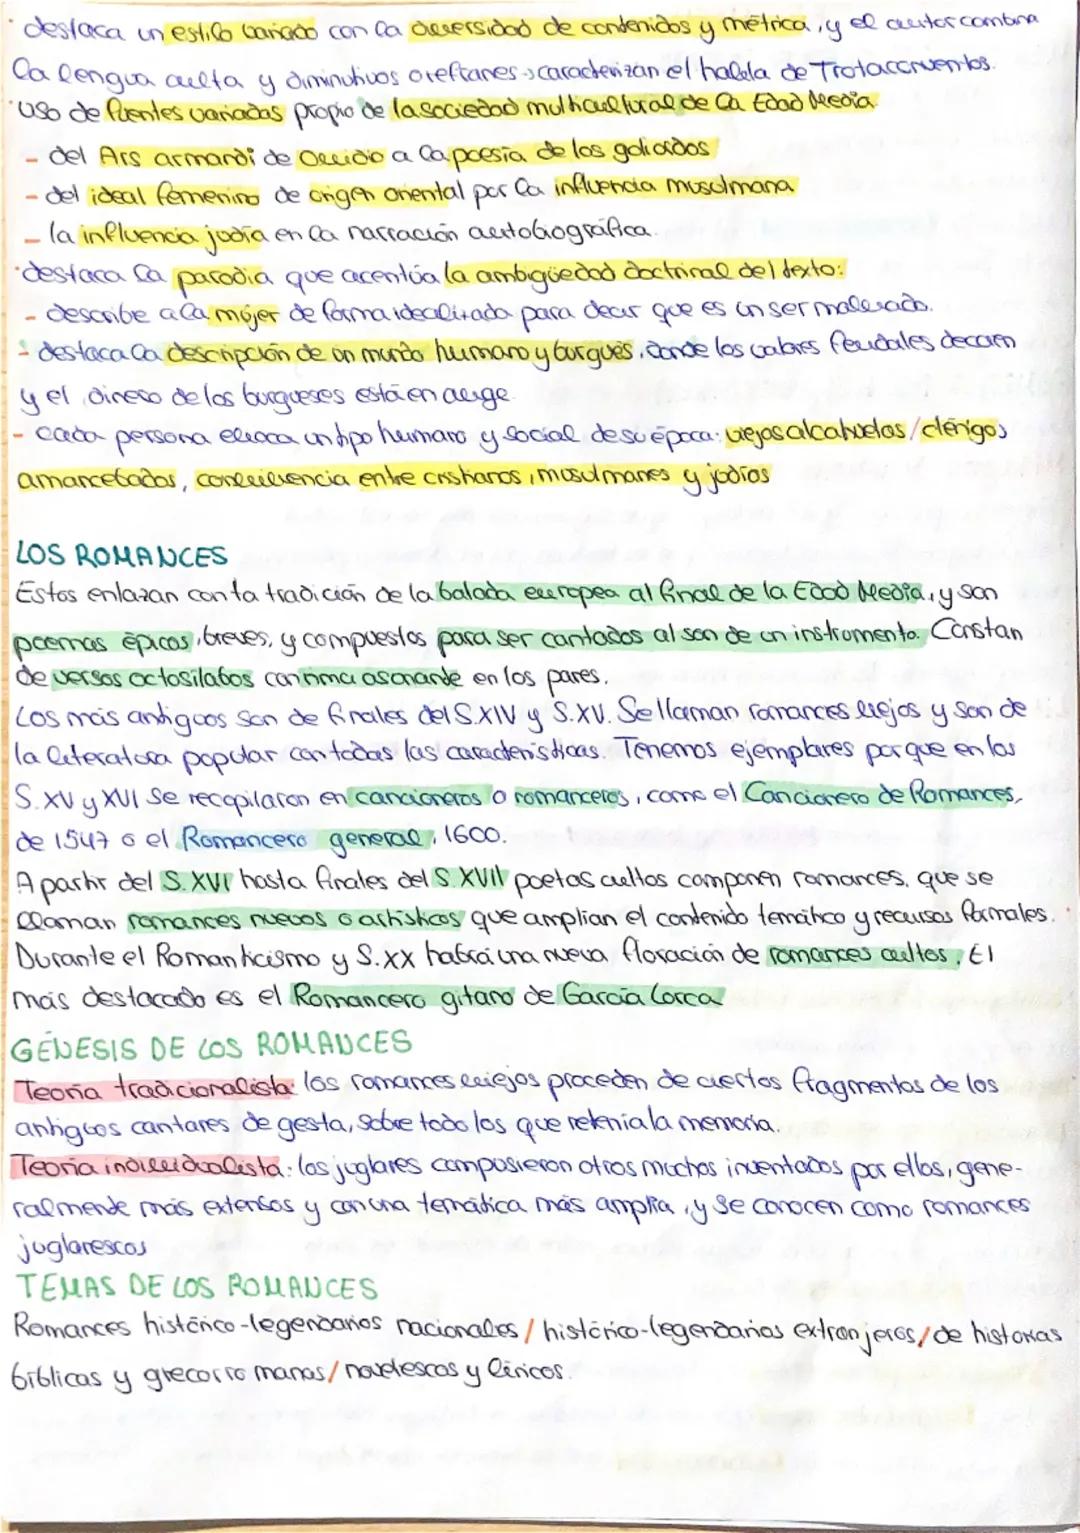 destaca un estilo variado con la diversidad de contenidos y métrica, y el autor combina
la lengua culta y diminutivos o refranes → caracterizan el habla de Trotaconventos.
· Uso de fuentes variadas propio de la sociedad multicultural de la Edad Media
- del Ars armandi de Ovidio a la poesía de los goliardos
- del ideal femenino de origen oriental por la influencia musulmana
- la influencia judía en la narración autobiográfica.
· destaca la parodia que acentúa la ambigüedad doctrinal del texto:
- describe a la mujer de forma idealizada para decir que es un ser malvado.
- destaca la descripción de un mundo humano y burgués, donde los valores feudales decaen
y el dinero de los burgueses está en auge.
- cada persona evoca un tipo humano y social de su época: viejas alcahuetas / clérigos
amancebados, convivencia entre cristianos, musulmanes y judíos
LOS ROMANCES
Estos enlazan con la tradición de la balada europea al final de la Edad Media, y son
poemas épicos, breves, y compuestos para ser cantados al son de un instrumento. Constan
de versos octosílabos con rima asonante en los pares.
Los más antiguos son de finales del S.XIV y S.XV. Se llaman romances viejos y son de
la literatura popular con todas las características. Tenemos ejemplares porque en los
S. XV y XVI se recopilaron en cancioneros o romanceros, como el Cancionero de Romances,
de 1547 o el Romancero general, 1600.
A partir del S. XVI hasta finales del S. XVII poetas cultos componen romances, que se
llaman romances nuevos o artísticos que amplian el contenido temático y recursos formales.
Durante el Romanticismo y S.XX habrá una nueva floración de romances cultos. El
más destacado es el Romancero gitano de García Lorca
GÉNESIS DE LOS ROMANCES
Teoría tradicionalista: los romances viejos proceden de ciertos fragmentos de los
antiguos cantares de gesta, sobre todo los que retenía la memoria.
Teoría individualista: los juglares compusieron otros muchos inventados por ellos, gene-
ralmente más extensos y con una temática más amplia, y se conocen como romances
juglarescos
TEMAS DE LOS ROMANCES
Romances histórico-legendarios nacionales / histórico-legendarios extranjeros / de historias
bíblicas y grecorromanas / novelescos y líricos.